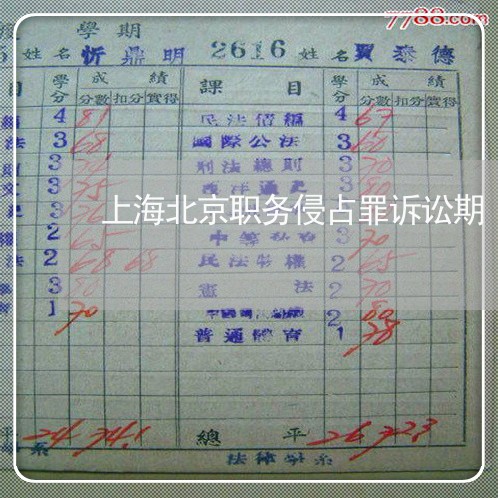 7788.com
學期
姓名 忻鼎明 2616 姓名 賈泰德
目 學分 成績 課目 學分 成績
分數 扣分 實得 分數 扣分 實得
4 81 民法債編 4 67
法 3 68 國際公法 3 60
3 刑法總則 3 70
文 3 75 西洋通史 3 80
上海北京职务侵占罪诉讼期
2 65 3 70
法 2 68 68 民法物權 2 65
3 80 憲法 2 70
育 1 70 2 80
普通體育 1 78
平 24 74.1 總平 26 72.3
系 法律學系